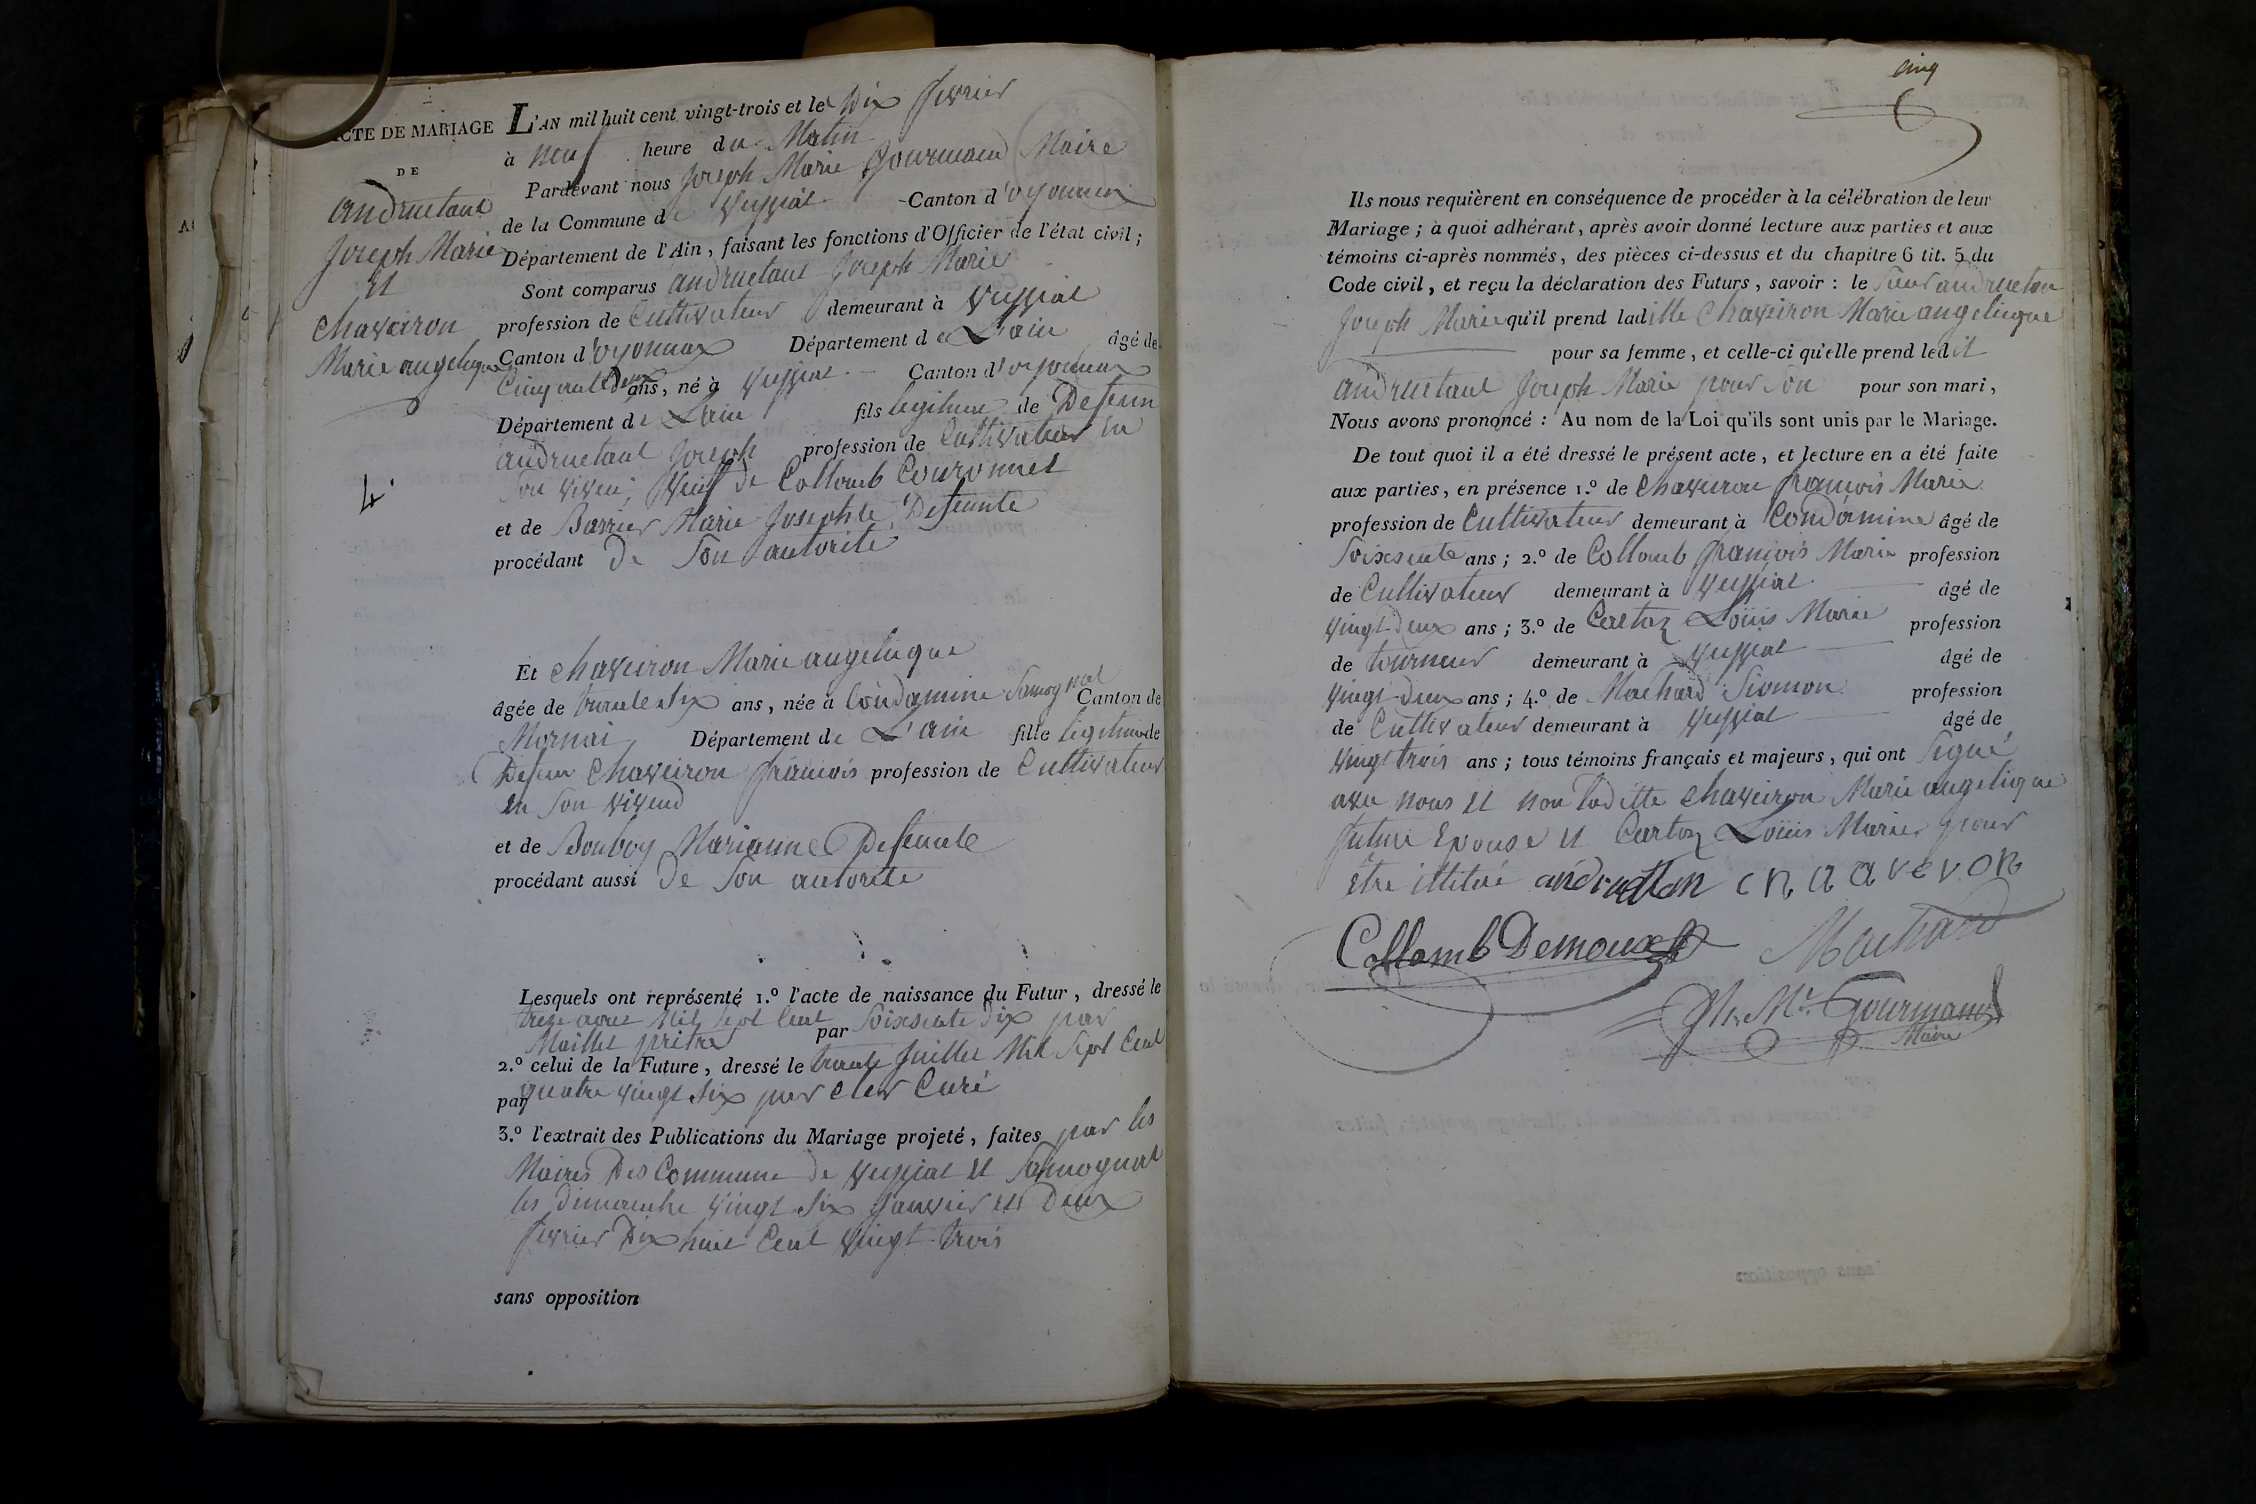 ACTE DE MARIAGE
DE
andruetant
Joseph Marie
et
chaveiron
Marie angelique
4.
L'AN mil huit cent vingt-trois et le Dix fevrier
à neuf heure du Matin
Pardevant nous Joseph Marie Gourmand Maire
de la Commune de veyziat Canton d'oyonnax
Département de l'Ain, faisant les fonctions d'Officier de l'état civil;
Sont comparus andruetant Joseph Marie
profession de Cultivateur demeurant à veyziat
Canton d'oyonnax Département de L'ain âgé de
Cinquante Deux ans, né à veyziat Canton d'oyonnax
Département de L'ain fils legitime de Defeun
andruetant Joseph profession de Cultivateur en
Son viven; veuf de Collomb Couronnet
et de Barrier Marie Josephte Defeunte
procédant De Son autorité
Et chaveiron Marie angelique
âgée de trante Six ans, née à Condamine Samognat Canton de
Mornai Département de L'ain fille legitime de
Defeun chaveiron françois profession de Cultivateur
en Son vivend
et de Bouboy Marianne Defeunte
procédant aussi De Son autorité
Lesquels ont représenté 1.º l'acte de naissance du Futur, dressé le
treze aout Mil Sept Cent Soixsente Dix par
par Maillet prètre
2.º celui de la Future, dressé le trante Juillet Mil Sept Cent
par quatre vingt Six par cler Curé
3.º l'extrait des Publications du Mariage projeté, faites par les
Maires Des Commune de veyziat et Samognat
les dimenche vingt Six Janvier et Deux
fevrier Dix huit Cent vingt trois
sans opposition
cinq
Ils nous requièrent en conséquence de procéder à la célébration de leur
Mariage; à quoi adhérant, après avoir donné lecture aux parties et aux
témoins ci-après nommés, des pièces ci-dessus et du chapitre 6 tit. 5 du
Code civil, et reçu la déclaration des Futurs, savoir: le Sieur andrueton
Joseph Marie qu'il prend laditte Chaveiron Marie angelique
pour sa femme, et celle-ci qu'elle prend ledit
andruetant Joseph Marie pour Son pour son mari,
Nous avons prononcé: Au nom de la Loi qu'ils sont unis par le Mariage.
De tout quoi il a été dressé le présent acte, et lecture en a été faite
aux parties, en présence 1.º de chaveiron françois Marie
profession de Cultivateur demeurant à Condamine âgé de
Soixsente ans; 2.º de Collomb françois Marie profession
de Cultivateur demeurant à veyziat âgé de
vingt Deux ans; 3.º de Cartoz Loüis Marie profession
de tourneur demeurant à veyziat âgé de
vingt Deux ans; 4.º de Machard Siomon profession
de Cultivateur demeurant à veyziat âgé de
vingt trois ans; tous témoins français et majeurs, qui ont Signé
avec nous et non laditte chaveiron Marie angelique
future Epouse et Cartoz Loüis Marie pour
être illiteré andrueton
Collomb Demoux Machard
Jh. Mie. Gourmand
Maire